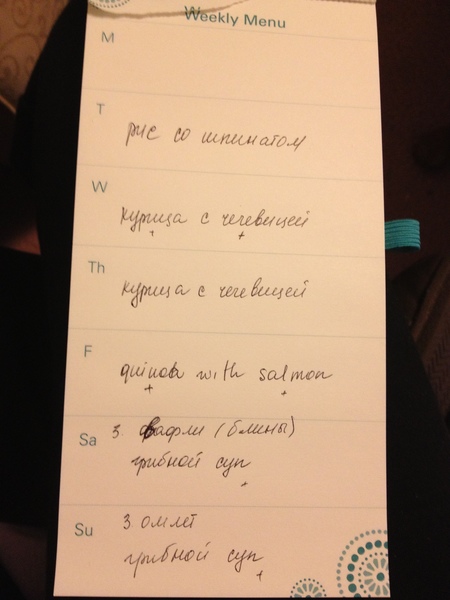 Weekly Menu
M
T
рис со шпинатом
W
курица с чечевицей
+ +
Th
курица с чечевицей
F
quinoa with salmon
+ +
Sa
з. вафли (блины)
грибной суп
+
Su
з. омлет
грибной суп
+